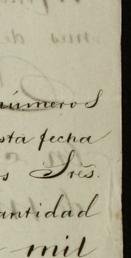 números
sta fecha
s Sres.
antidad
mil